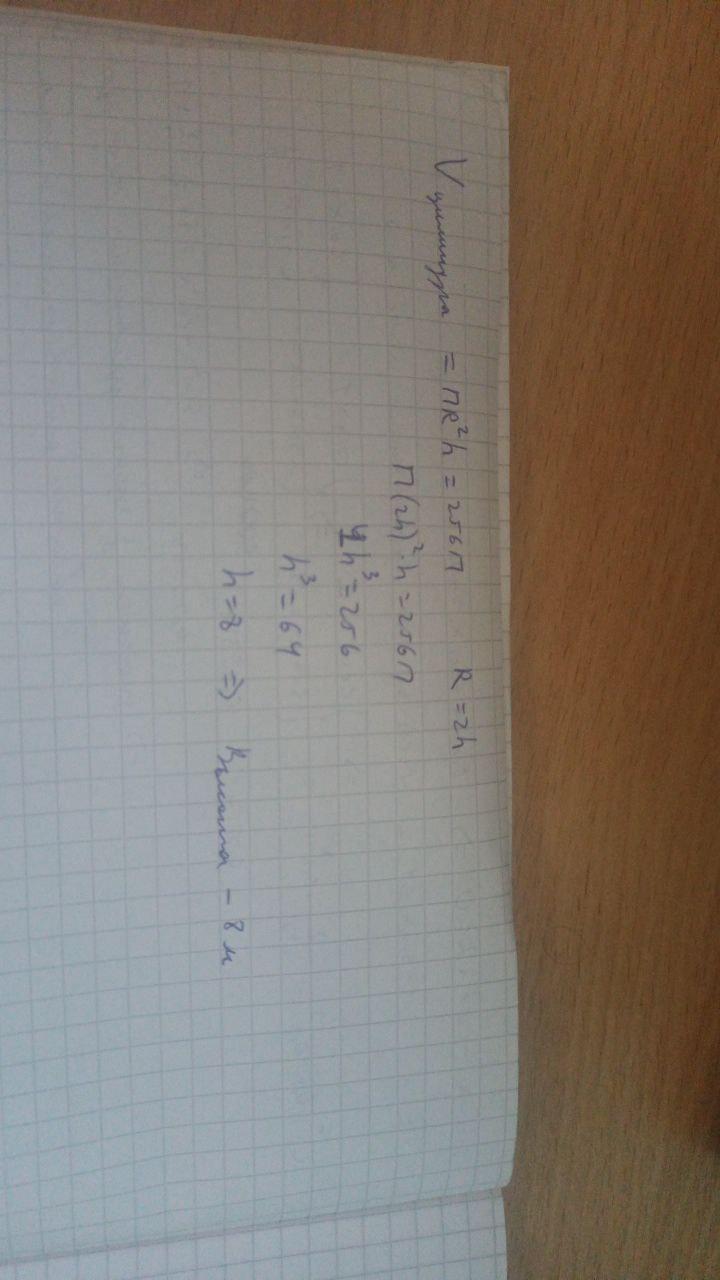 V цилиндра = ПR²h = 256П R = 2h
П(2h)²·h = 256П
4h³ = 256
h³ = 64
h = 8 ⇒ Высота – 8 м